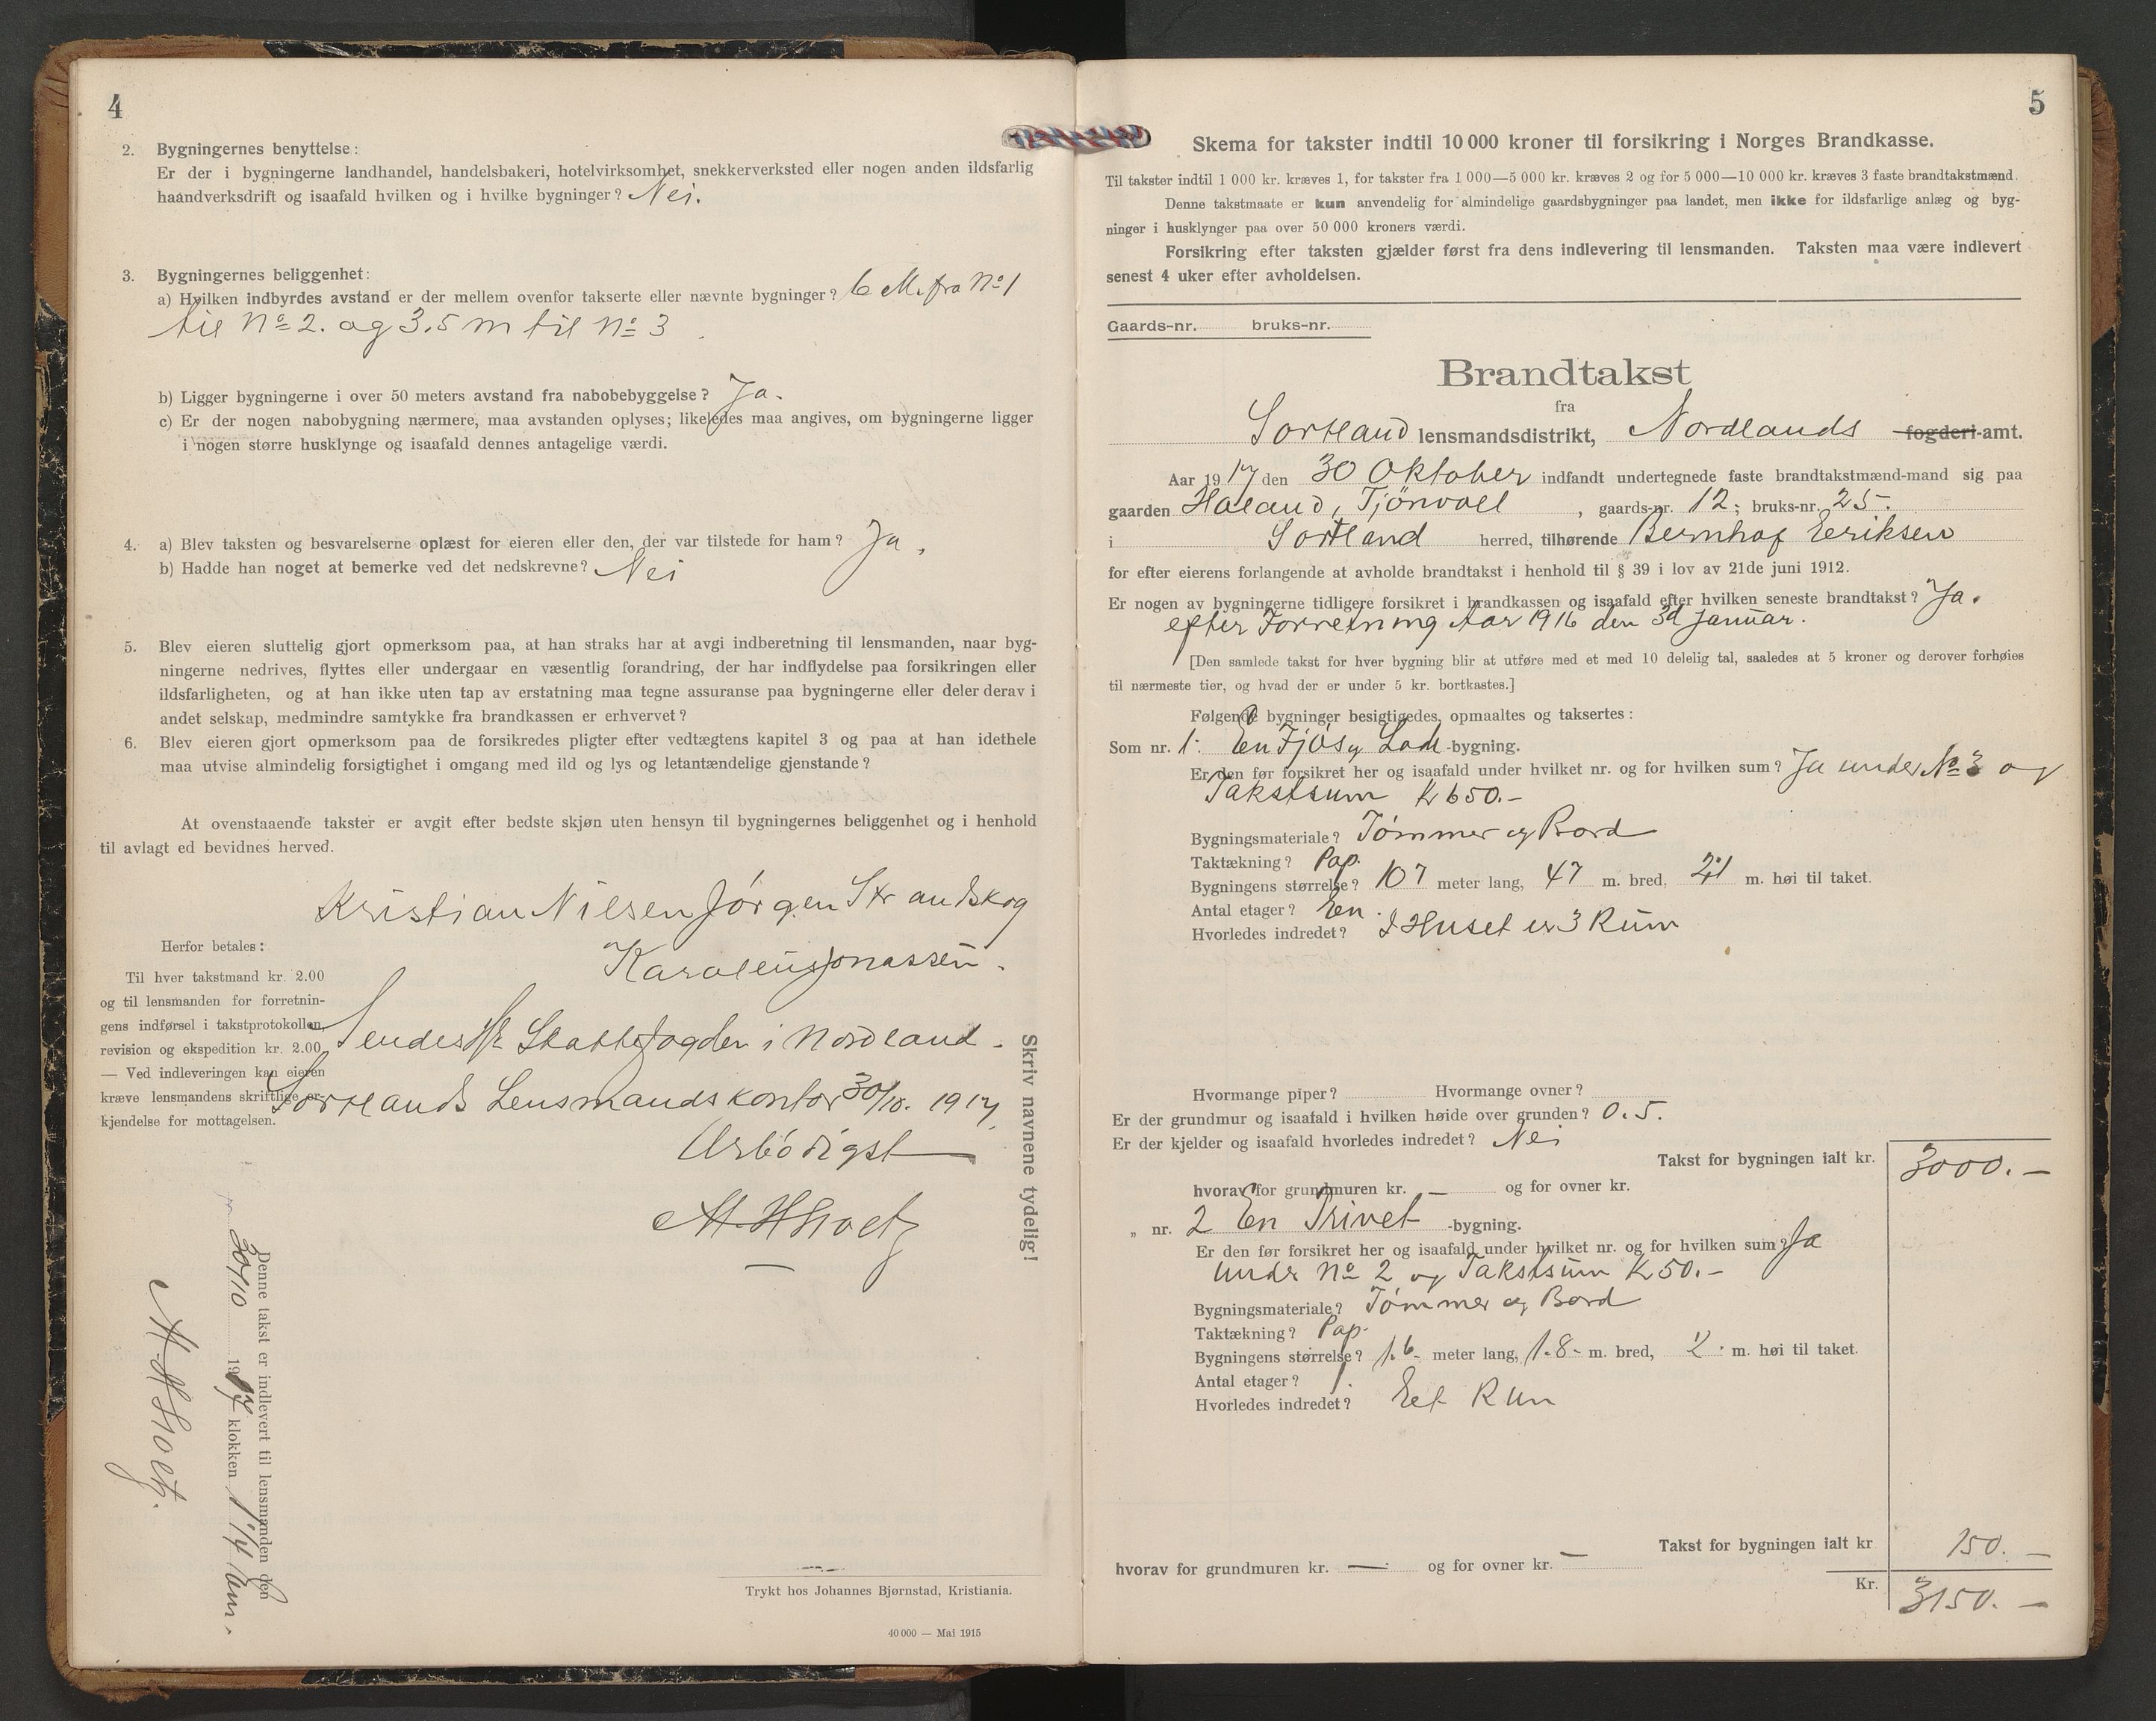 4
2. Bygningernes benyttelse:
Er der i bygningerne landhandel, handelsbakeri, hotelvirksomhet, snekkerverksted eller nogen anden ildsfarlig
haandverksdrift og isaafald hvilken og i hvilke bygninger? Nei.
3. Bygningernes beliggenhet:
a) Hvilken indbyrdes avstand er der mellem ovenfor takserte eller nævnte bygninger? 6 M. fra No 1
til No 2. og 3.5 m til No 3
b) Ligger bygningerne i over 50 meters avstand fra nabobebyggelse? Ja.
c) Er der nogen nabobygning nærmere, maa avstanden oplyses; likeledes maa angives, om bygningerne ligger
i nogen større husklynge og isaafald dennes antagelige værdi.
4. a) Blev taksten og besvarelserne oplæst for eieren eller den, der var tilstede for ham? Ja.
b) Hadde han noget at bemerke ved det nedskrevne? Nei
5. Blev eieren sluttelig gjort opmerksom paa, at han straks har at avgi indberetning til lensmanden, naar byg-
ningerne nedrives, flyttes eller undergaar en væsentlig forandring, der har indflydelse paa forsikringen eller
ildsfarligheten, og at han ikke uten tap av erstatning maa tegne assuranse paa bygningerne eller deler derav i
andet selskap, medmindre samtykke fra brandkassen er erhvervet?
6. Blev eieren gjort opmerksom paa de forsikredes pligter efter vedtægtens kapitel 3 og paa at han idethele
maa utvise almindelig forsigtighet i omgang med ild og lys og letantændelige gjenstande?
At ovenstaaende takster er avgit efter bedste skjøn uten hensyn til bygningernes beliggenhet og i henhold
til avlagt ed bevidnes herved.
Kristian Nilsen Jörgen Strandskog
Karoleus Jonassen.
Herfor betales:
Til hver takstmand kr. 2.00
og til lensmanden for forretnin-
gens indførsel i takstprotokollen,
revision og ekspedition kr. 2.00.
— Ved indleveringen kan eieren
kræve lensmandens skriftlige er-
kjendelse for mottagelsen.
Sendes Hr Skattefogden i Nordland.
Sortlands Lensmandskontor 30/10. 1917.
Ærbödigst
Skriv navnene tydelig!
Denne takst er indlevert til lensmanden den
30/10 1917 klokken
Trykt hos Johannes Bjørnstad, Kristiania.
40 000 — Mai 1915
5
Skema for takster indtil 10 000 kroner til forsikring i Norges Brandkasse.
Til takster indtil 1 000 kr. kræves 1, for takster fra 1 000—5 000 kr. kræves 2 og for 5 000—10 000 kr. kræves 3 faste brandtakstmænd.
Denne takstmaate er kun anvendelig for almindelige gaardsbygninger paa landet, men ikke for ildsfarlige anlæg og byg-
ninger i husklynger paa over 50 000 kroners værdi.
Forsikring efter taksten gjælder først fra dens indlevering til lensmanden. Taksten maa være indlevert
senest 4 uker efter avholdelsen.
Gaards-nr. bruks-nr.
Brandtakst
fra
Sortland lensmandsdistrikt, Nordlands fogderi-amt.
Aar 1917 den 30 Oktober indfandt undertegnede faste brandtakstmænd-mand sig paa
gaarden Holand, Tjönvoll, gaards-nr. 12; bruks-nr. 25.
i Sortland herred, tilhørende Bernhof Eriksen
for efter eierens forlangende at avholde brandtakst i henhold til § 39 i lov av 21de juni 1912.
Er nogen av bygningerne tidligere forsikret i brandkassen og isaafald efter hvilken seneste brandtakst? Ja.
efter Forretning Aar 1916 den 3d Januar.
[Den samlede takst for hver bygning blir at utføre med et med 10 delelig tal, saaledes at 5 kroner og derover forhøies
til nærmeste tier, og hvad der er under 5 kr. bortkastes.]
Følgende bygninger besigtigedes, opmaaltes og taksertes:
Som nr. 1. En Fjös og Lade-bygning.
Er den før forsikret her og isaafald under hvilket nr. og for hvilken sum? Ja under No 3 og
Takstsum Kr 650.-
Bygningsmateriale? Tömmer og Bord
Taktækning? Pap.
Bygningens størrelse? 107 meter lang, 47 m. bred, m. høi til taket.
Antal etager? Een.
Hvorledes indredet? I Huset er 3 Rum
Hvormange piper? Hvormange ovner?
Er der grundmur og isaafald i hvilken høide over grunden? 0.5.
Er der kjelder og isaafald hvorledes indredet? Nei
Takst for bygningen ialt kr. 3000.—
hvorav for grundmuren kr. — og for ovner kr.
„ nr. 2 En Privet-bygning.
Er den før forsikret her og isaafald under hvilket nr. og for hvilken sum? Ja
under No 2 og Takstsum Kr 50.-
Bygningsmateriale? Tömmer og Bord
Taktækning? Pap.
Bygningens størrelse? 1.6- meter lang, 1.8- m. bred, 2. m. høi til taket.
Antal etager? 1.
Hvorledes indredet? Eet Rum
Takst for bygningen ialt kr 150.—
hvorav for grundmuren kr. — og for ovner kr. —
Kr. 3150.—